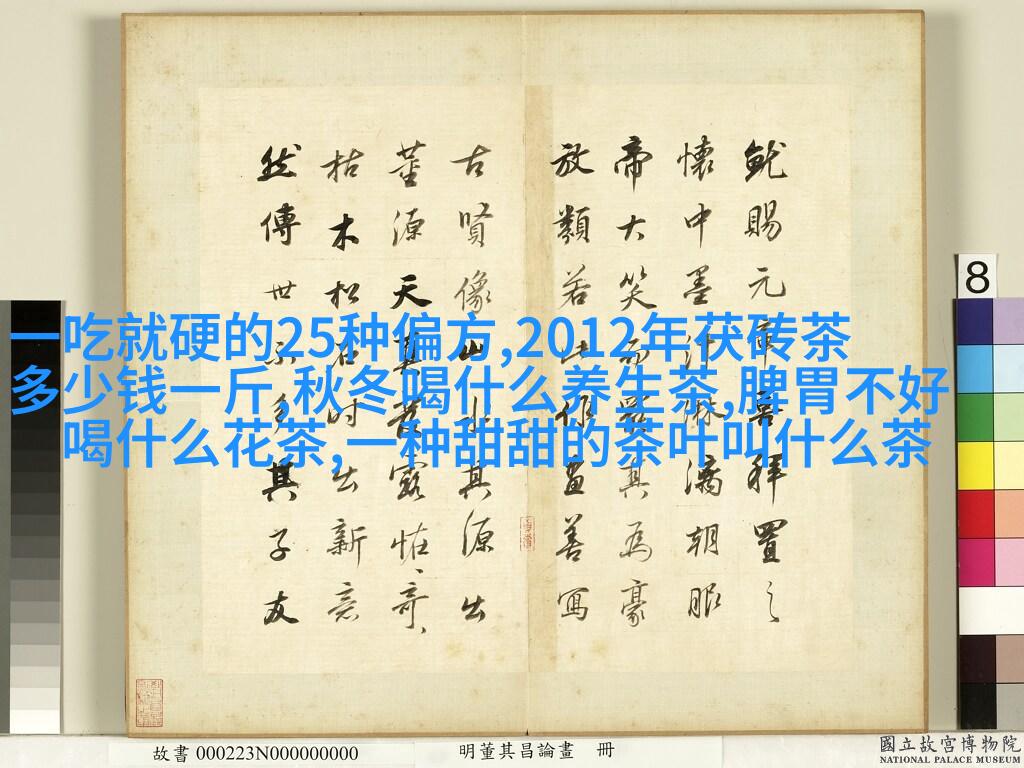 就賜元章喜拜置之
懷中墨汁淋漓朝服
帝大笑而罷其為豪
放類若此作畫善寫
古賢像山水其源出
董源天真發露怪、奇、
枯木松石時出新意
然傳世不多其子友
一吃就硬的25种偏方,2012年茯砖茶
多少钱一斤,秋冬喝什么养生茶,脾胃不好
喝什么花茶,一种甜甜的茶叶叫什么茶
8
故書 000223N000000000
明董其昌論畫 冊
國立故宮博物院
NATIONAL PALACE MUSEUM